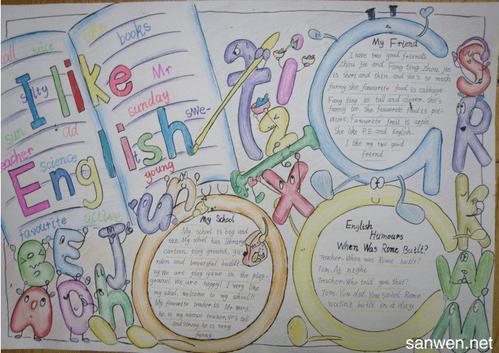 books
I like
Mr
sunday
English
swe-
young
science
favourite
active
My Friend
I have two good friends
Zhou Jie and Fang Ting. Zhou Jie
is very and thin. and she's so much
funny. she favourite food is cabbage
Fang ting so tall and clever. She's
favourite fruit is apple.
She like P.E and English.
I like my two good
friend.
My School
My school is big and
nice. My school has library
canteen, play ground, ga-
rden and beautiful buildi-
ng. We are play game in the play-
ground. We are happy! I very like
my school. welcome to my school!!
My favourite teacher is Mr
he is my chinese teacher. He's tall
and strong he is very
funny.
English
Humours
When Was Rome Built?
Teacher: When was Rome built?
Tom: At night.
Teacher: Who told you that?
Tom: You did. You said Rome
wasn't built in a day.
sanwen.net